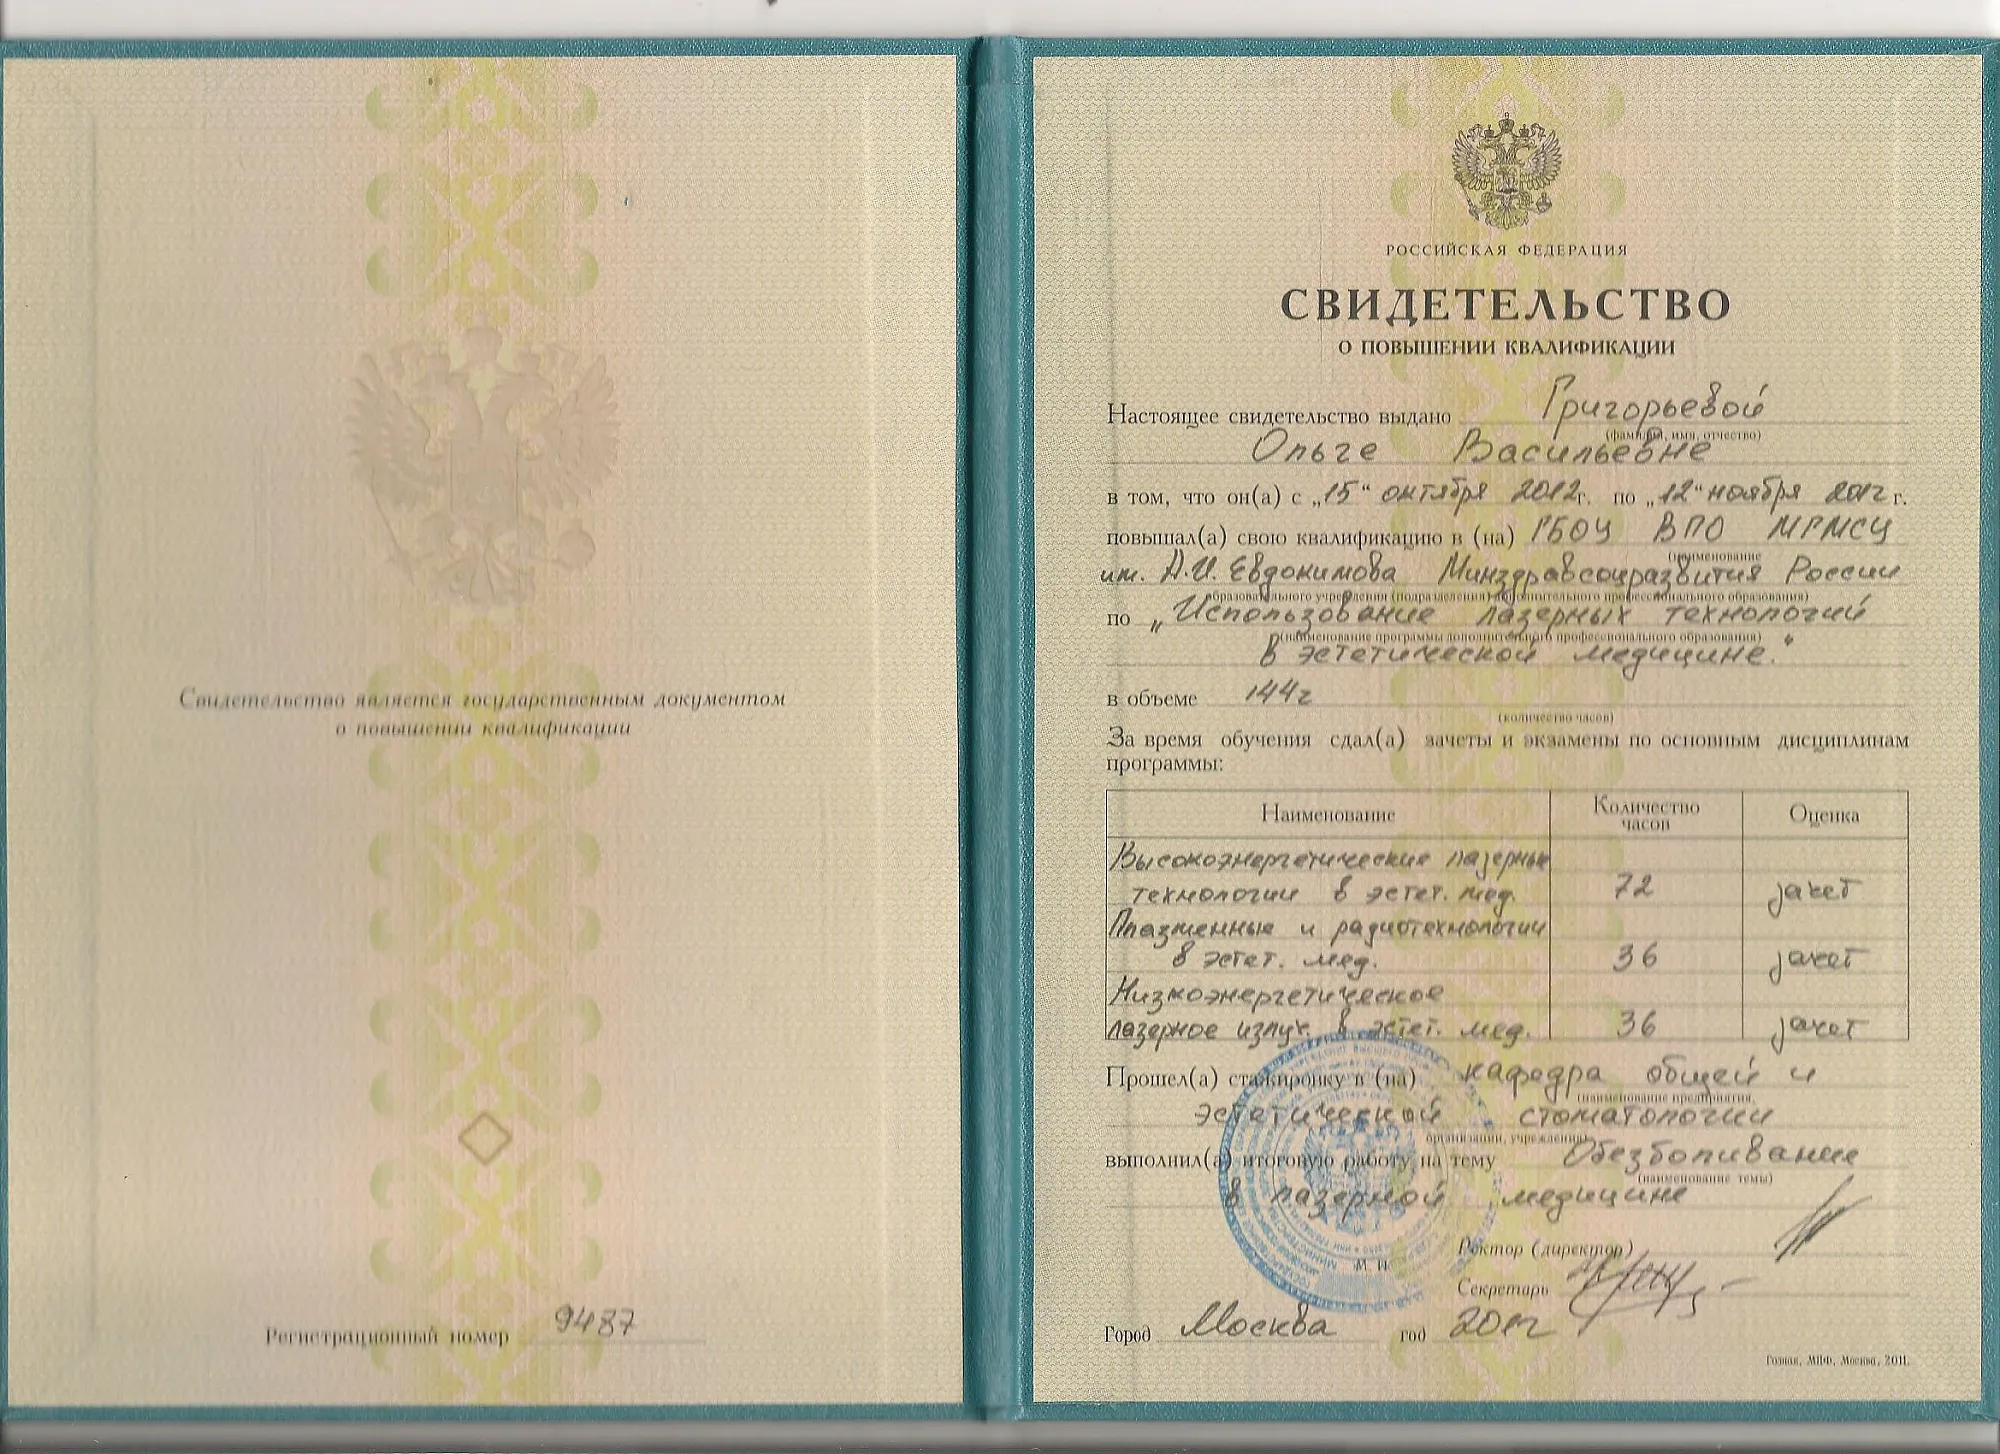 Свидетельство является государственным документом
о повышении квалификации
Регистрационный номер 9487
РОССИЙСКАЯ ФЕДЕРАЦИЯ
СВИДЕТЕЛЬСТВО
О ПОВЫШЕНИИ КВАЛИФИКАЦИИ
Настоящее свидетельство выдано Григорьевой
(фамилия, имя, отчество)
Ольге Васильевне
в том, что он(а) с „15“ октября 2012г. по „12“ ноября 2012 г.
повышал(а) свою квалификацию в (на) ГБОУ ВПО МГМСУ
(наименование
им. А.И. Евдокимова Минздравсоцразвития России
образовательного учреждения (подразделения) дополнительного профессионального образования)
по „Использование лазерных технологий
(наименование программы дополнительного профессионального образования)
в эстетической медицине."
в объеме 144г
(количество часов)
За время обучения сдал(а) зачеты и экзамены по основным дисциплинам
программы:
Наименование Количество часов Оценка
Высокоэнергетические лазерные
технологии в эстет. мед. 72 зачет
Плазменные и радиотехнологии
в эстет. мед. 36 зачет
Низкоэнергетическое
лазерное излуч. в эстет. мед. 36 зачет
Прошел(а) стажировку в (на) кафедра общей и
(наименование предприятия,
эстетической стоматологии
организации, учреждения)
выполнил(а) итоговую работу на тему Обезболивание
(наименование темы)
в лазерной медицине
Ректор (директор)
М. П.
Секретарь
Город Москва год 2012
Гознак, МПФ, Москва, 2011.